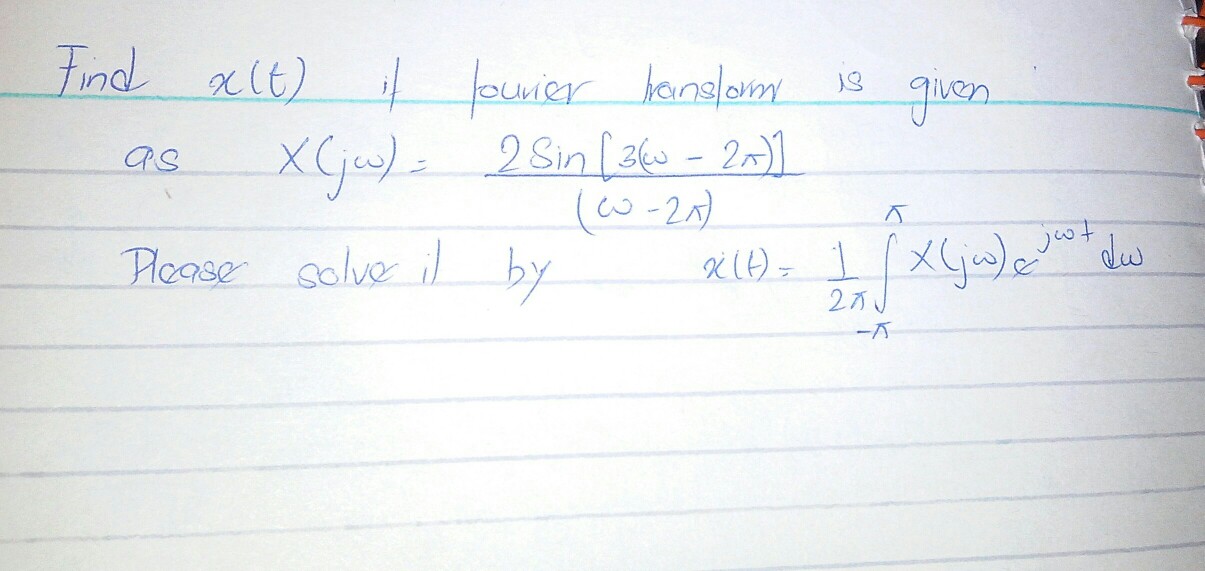 Find x(t) if fourier transform is given
as X(jω) = 2 Sin [3(ω - 2π)] / (ω - 2π)
Please solve it by x(t) = 1/2π ∫_{-π}^{π} X(jω) e^{jωt} dω